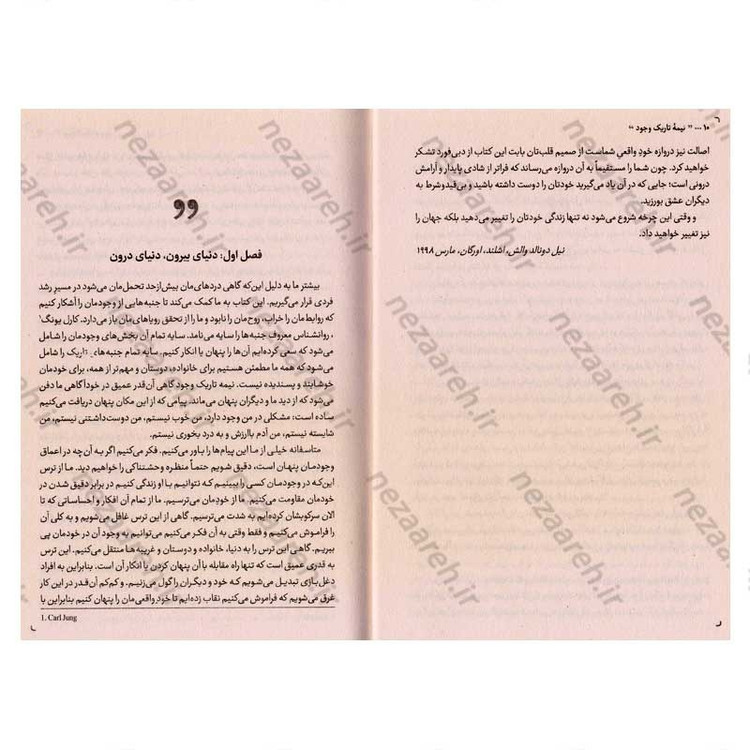 ۱۰ ... " نیمهٔ تاریک وجود "
اصالت نیز دروازه خود واقعی شماست از صمیم قلب‌تان بابت این کتاب از دبی‌فورد تشکر
خواهید کرد. چون شما را مستقیماً به آن دروازه می‌رساند که فراتر از شادی پایدار و آرامش
درونی است؛ جایی که در آن یاد می‌گیرید خودتان را دوست داشته باشید و بی‌قیدوشرط به
دیگران عشق بورزید.
و وقتی این چرخه شروع می‌شود نه تنها زندگی خودتان را تغییر می‌دهید بلکه جهان را
نیز تغییر خواهید داد.
نیل دونالد والش، اشلند، اورگان، مارس ۱۹۹۸
فصل اول: دنیای بیرون، دنیای درون
بیشتر ما به دلیل این‌که گاهی دردهای‌مان بیش‌ازحد تحمل‌مان می‌شود در مسیر رشد
فردی قرار می‌گیریم. این کتاب به ما کمک می‌کند تا جنبه‌هایی از وجودمان را آشکار کنیم
که روابط‌مان را خراب، روح‌مان را نابود و ما را از تحقق رویاهای‌مان باز می‌دارد. کارل یونگ¹
، روانشناس معروف جنبه‌ها را سایه می‌نامد. سایه تمام آن بخش‌های وجودمان را شامل
می‌شود که سعی کرده‌ایم آن‌ها را پنهان یا انکار کنیم. سایه تمام جنبه‌های تاریک را شامل
می‌شود که همه ما مطمئن هستیم برای خانواده، دوستان و مهم‌تر از همه، برای خودمان
خوشایند و پسندیده نیست. نیمه تاریک وجود گاهی آن‌قدر عمیق در خودآگاهی ما دفن
می‌شود که از دید ما و دیگران پنهان می‌ماند. پیامی که از این مکان پنهان دریافت می‌کنیم
ساده است: مشکلی در من وجود دارد، من خوب نیستم، من دوست‌داشتنی نیستم، من
شایسته نیستم، من آدم باارزش و به درد بخوری نیستم.
متاسفانه خیلی از ما این پیام‌ها را باور می‌کنیم. فکر می‌کنیم اگر به آن‌چه در اعماق
وجودمان پنهان است، دقیق شویم حتماً منظره وحشتناکی را خواهیم دید. ما از ترس
این‌که در وجودمان کسی را ببینیم که نتوانیم با او زندگی کنیم در برابر دقیق شدن در
خودمان مقاومت می‌کنیم. ما از خودمان می‌ترسیم. ما از تمام آن افکار و احساساتی که تا
الان سرکوبشان کرده‌ایم به شدت می‌ترسیم. گاهی از این ترس غافل می‌شویم و به کلی آن
را فراموش می‌کنیم و فقط وقتی به آن فکر می‌کنیم می‌توانیم به وجود آن در خودمان پی
ببریم. گاهی این ترس را به دنیا، خانواده و دوستان و غریبه‌ها منتقل می‌کنیم. این ترس
به قدری عمیق است که تنها راه مقابله با آن پنهان کردن یا انکار آن است. بنابراین به افراد
دغل‌بازی تبدیل می‌شویم که خود و دیگران را گول می‌زنیم. و کم‌کم آن‌قدر در این کار
غرق می‌شویم که فراموش می‌کنیم نقاب زده‌ایم تا خود واقعی‌مان را پنهان کنیم بنابراین با
1. Carl Jung
nezaareh.ir
nezaareh.ir
nezaareh.ir
nezaareh.ir
nezaareh.ir
nezaareh.ir
nezaareh.ir
nezaareh.ir